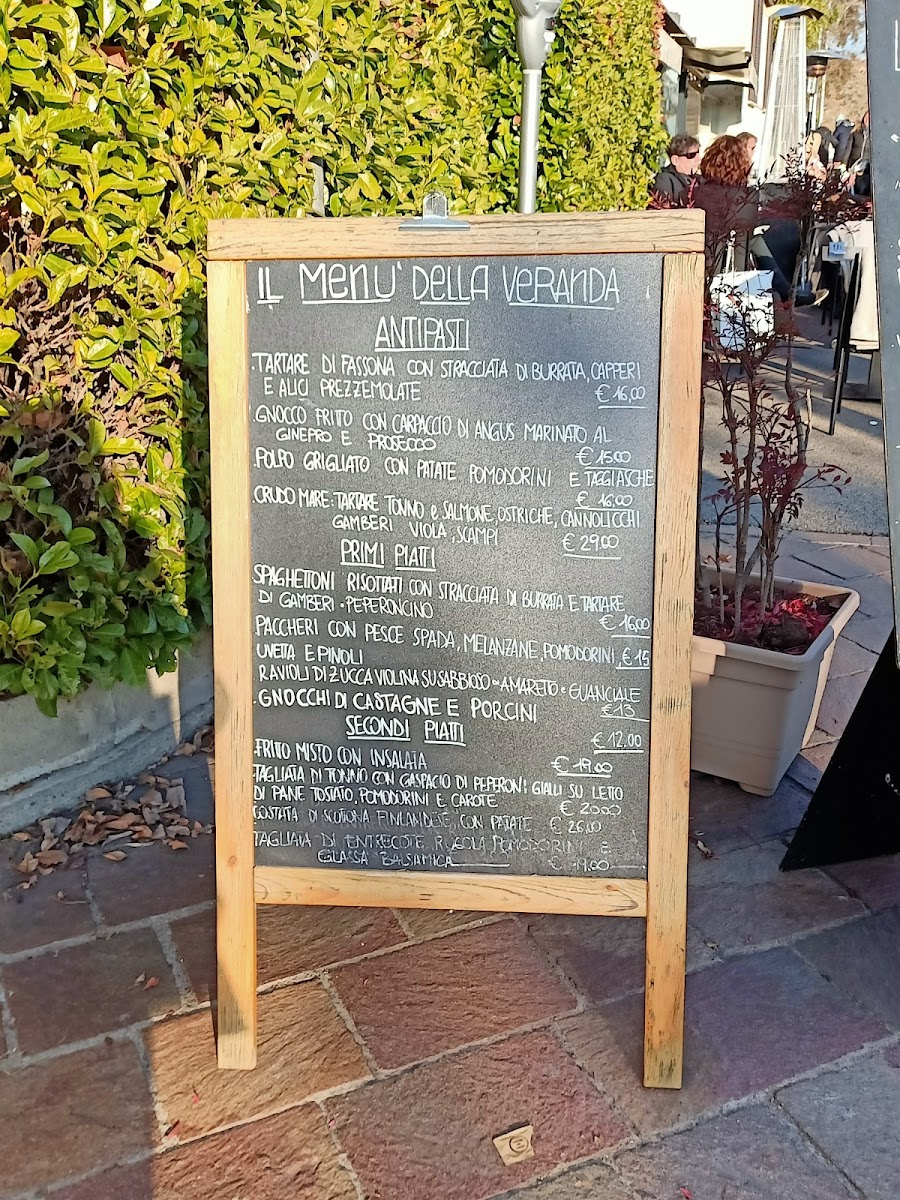 IL MENU' DELLA VERANDA
ANTIPASTI
.TARTARE DI FASSONA CON STRACCIATA DI BURRATA, CAPPERI
E ALICI PREZZEMOLATE € 16,00
.GNOCCO FRITTO CON CARPACCIO DI ANGUS MARINATO AL
GINEPRO E PROSECCO € 15.00
.POLPO GRIGLIATO CON PATATE POMODORINI E TAGGIASCHE
€ 16.00
.CRUDO MARE: TARTARE TONNO e SALMONE, OSTRICHE, CANNOLICCHI
GAMBERI VIOLA, SCAMPI € 29.00
PRIMI PIATTI
SPAGHETTONI RISOTTATI CON STRACCIATA DI BURRATA E TARTARE
DI GAMBERI - PEPERONCINO € 16,00
PACCHERI CON PESCE SPADA, MELANZANE, POMODORINI,
UVETTA E PINOLI € 15
RAVIOLI DI ZUCCA VIOLINA SU SABBIOSO - AMARETTO - GUANCIALE
€ 13
.GNOCCHI DI CASTAGNE E PORCINI
€ 12.00
SECONDI PIATTI
.FRITTO MISTO CON INSALATA € 19.00
.TAGLIATA DI TONNO CON GASPACIO DI PEPERONI GIALLI SU LETTO
DI PANE TOSTATO, POMODORINI E CAROTE € 20.00
COSTATA DI SCOTTONA FINLANDESE, CON PATATE € 26,00
TAGLIATA DI ENTRECOTE RUCOLA, POMODORINI E
GLASSA BALSAMICA € 19.00